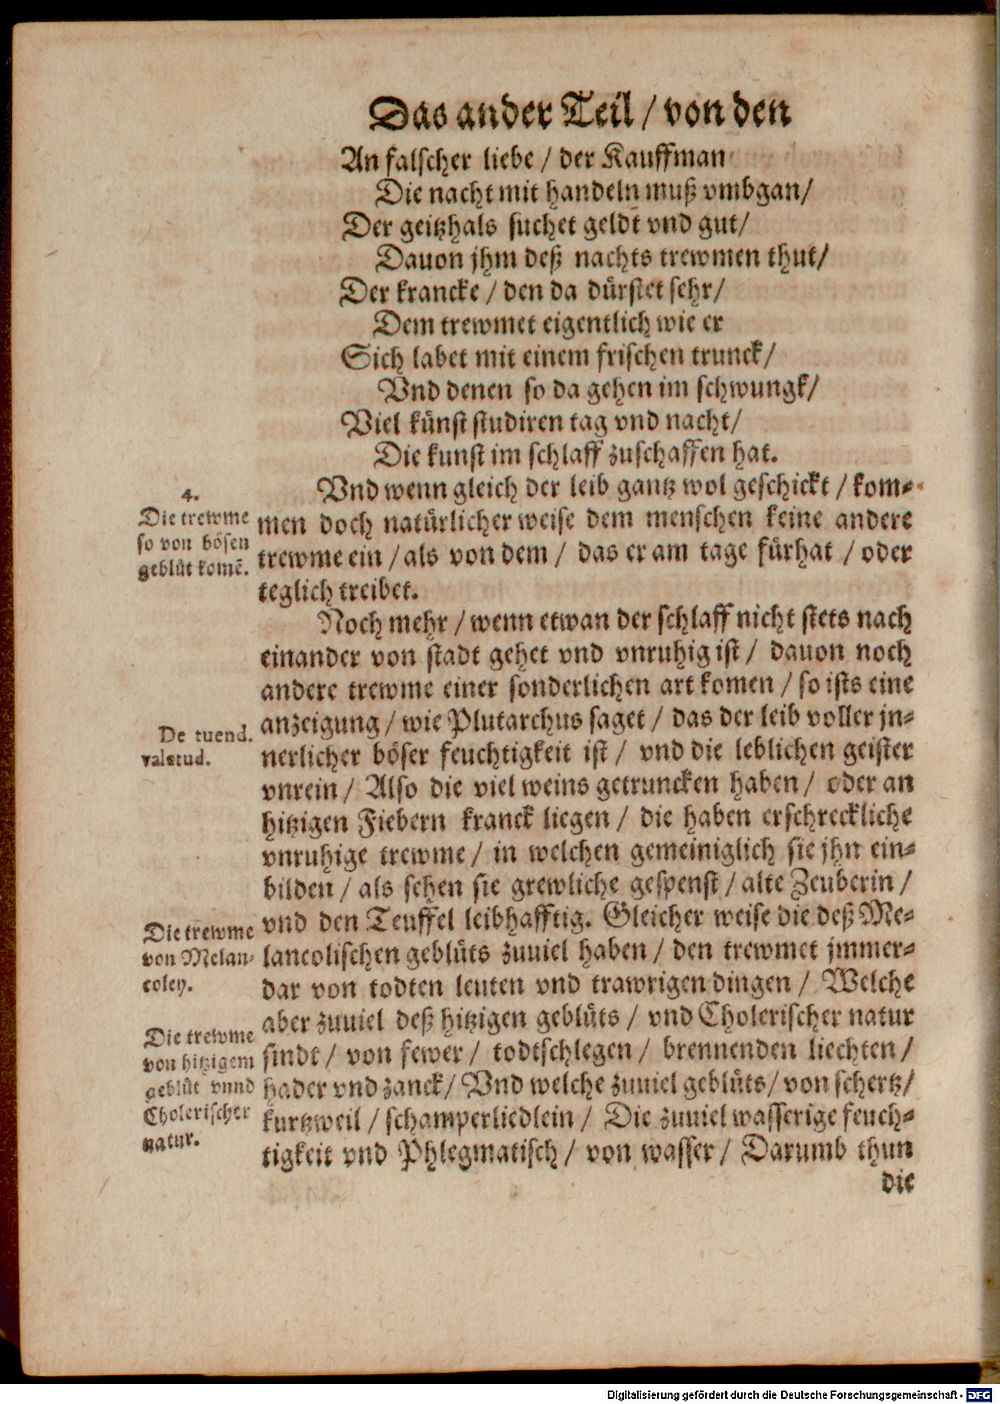 Das ander Teil / von den
An falscher liebe / der Kauffman
Die nacht mit handeln muß vmbgan /
Der geitzhals suchet geldt vnd gut /
Dauon jhm deß nachts trewmen thut /
Der krancke / den da dürstet sehr /
Dem trewmet eigentlich wie er
Sich labet mit einem frischen trunck /
Vnd denen so da gehen im schwungk /
Viel künst studiren tag vnd nacht /
Die kunst im schlaff zuschaffen hat.
4.
Die trewme
so von bösen
geblüt komē.
Vnd wenn gleich der leib gantz wol geschickt / kom-
men doch natürlicher weise dem menschen keine andere
trewme ein / als von dem / das er am tage fürhat / oder
teglich treibet.
Noch mehr / wenn etwan der schlaff nicht stets nach
einander von stadt gehet vnd vnruhig ist / dauon noch
andere trewme einer sonderlichen art komen / so ists eine
De tuend.
valetud.
anzeigung / wie Plutarchus saget / das der leib voller jn-
nerlicher böser feuchtigkeit ist / vnd die leblichen geister
vnrein / Also die viel weins getruncken haben / oder an
hitzigen Fiebern kranck liegen / die haben erschreckliche
vnruhige trewme / in welchen gemeiniglich sie jhn ein-
bilden / als sehen sie grewliche gespenst / alte Zeuberin /
Die trewme
von Melan-
coley.
vnd den Teuffel leibhafftig. Gleicher weise die deß Me-
lancolischen geblüts zuuiel haben / den trewmet jmmer-
dar von todten leuten vnd trawrigen dingen / Welche
Die trewme
von hitzigem
geblüt vnnd
Cholerischer
natur.
aber zuuiel deß hitzigen geblüts / vnd Cholerischer natur
sindt / von fewer / todtschlegen / brennenden liechten /
hader vnd zanck / Vnd welche zuuiel geblüts / von schertz /
kurtzweil / schamperliedlein / Die zuuiel wasserige feuch-
tigkeit vnd Phlegmatisch / von wasser / Darumb thun
die
Digitalisierung gefördert durch die Deutsche Forschungsgemeinschaft - DFG